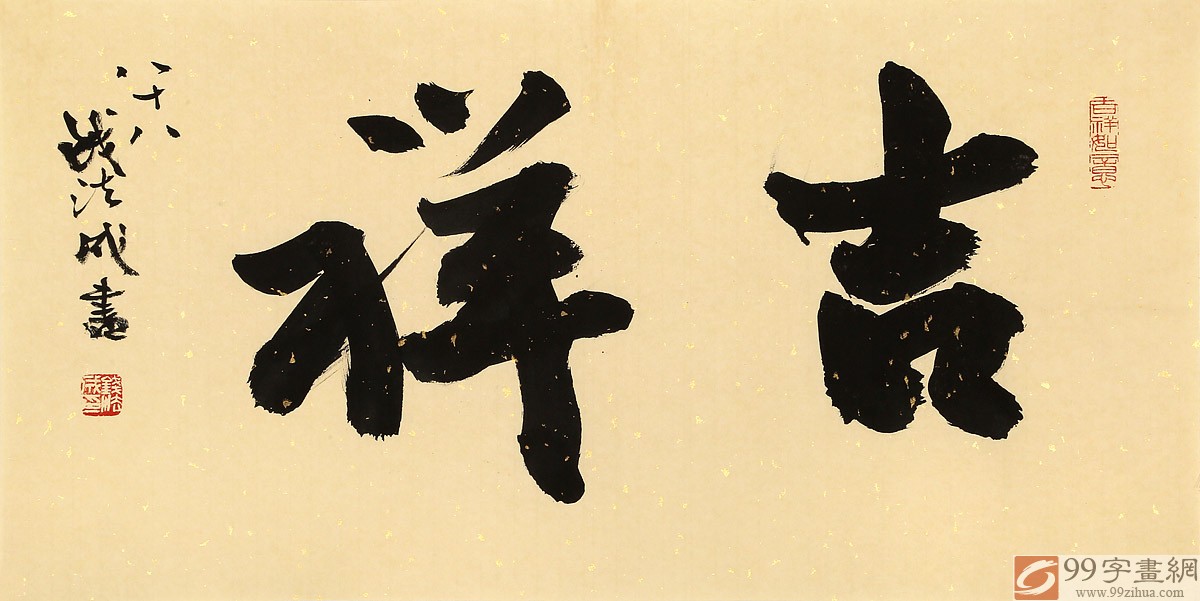 吉祥如意
吉祥
八十八
钱法成書
錢法成印
99字畫網
www.99zihua.com